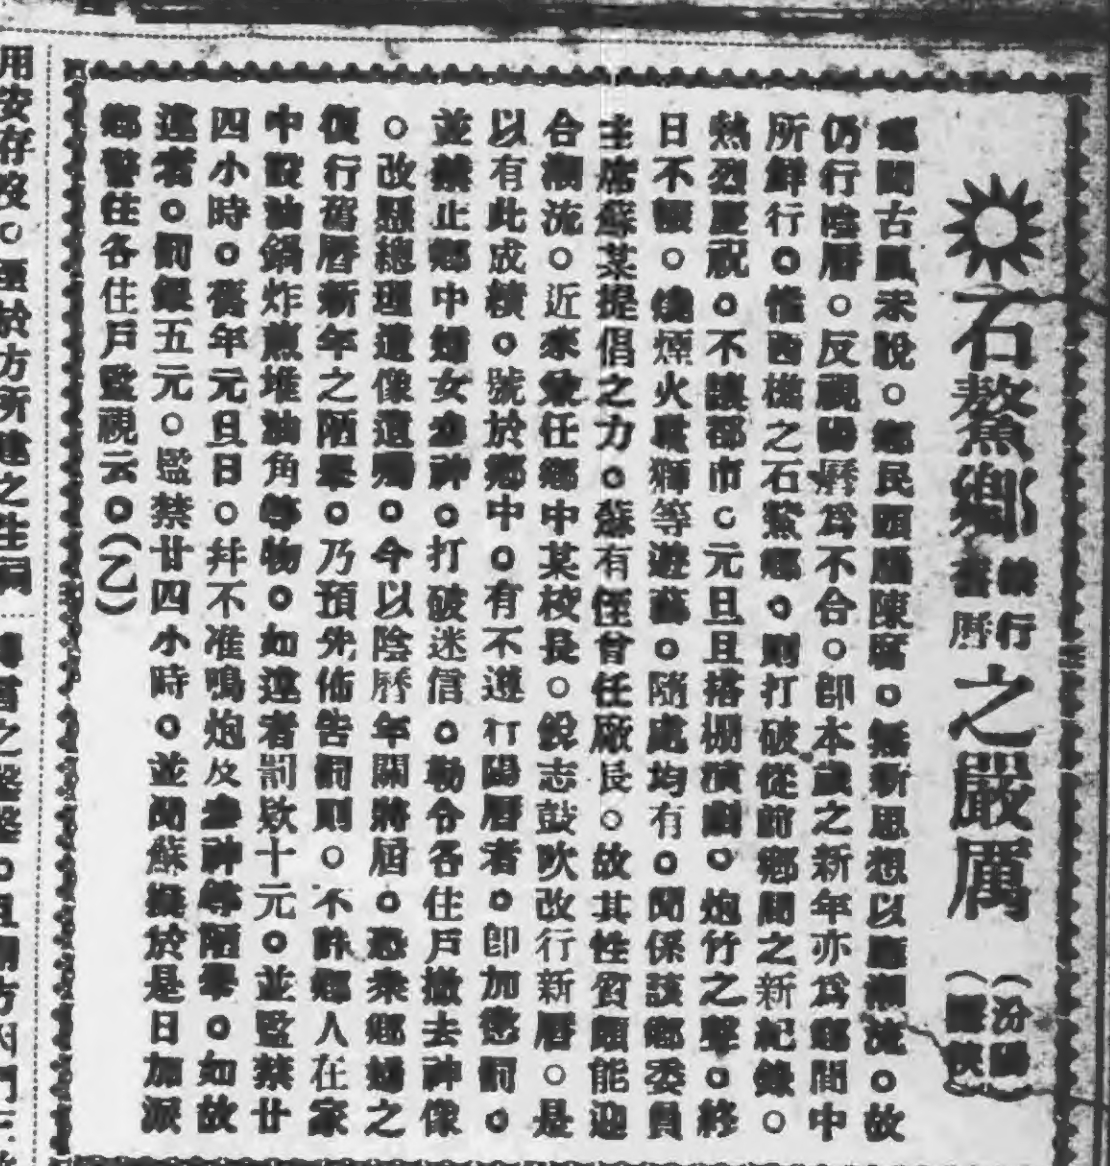 石鰲鄉禁行舊曆之嚴厲
鄉間古風未脫。鄉民頭腦陳腐。無新思想以應潮流。故
仍行陰曆。反視陽曆爲不合。卽本歲之新年亦爲鄉間中
所鮮行。惟西樵之石鰲鄉。則打破從前鄉間之新紀錄。
熱烈慶祝。不讓都市。元旦且搭棚演劇。炮竹之聲。終
日不輟。燒煙火舞獅等遊藝。隨處均有。聞係該鄉委員
主席蘇某提倡之力。蘇有侄曾任廠長。故其性質頗能迎
合潮流。近來兼任鄉中某校長。銳志鼓吹改行新曆。是
以有此成績。號於鄉中。有不遵行陽曆者。卽加懲罰。
並禁止鄉中婦女拜神。打破迷信。勒令各住戶撤去神像
。改懸總理遺像遺囑。今以陰曆年關將屆。恐來鄉婦之
復行舊曆新年之陋舉。乃預先佈告罰則。不許鄉人在家
中設油鍋炸煎堆油角等物。如違者罰欵十元。並監禁廿
四小時。舊年元旦日。幷不准鳴炮及拜神等陋舉。如故
違者。罰銀五元。監禁廿四小時。並聞蘇擬於是日加派
鄉警往各住戶監視云。(乙)